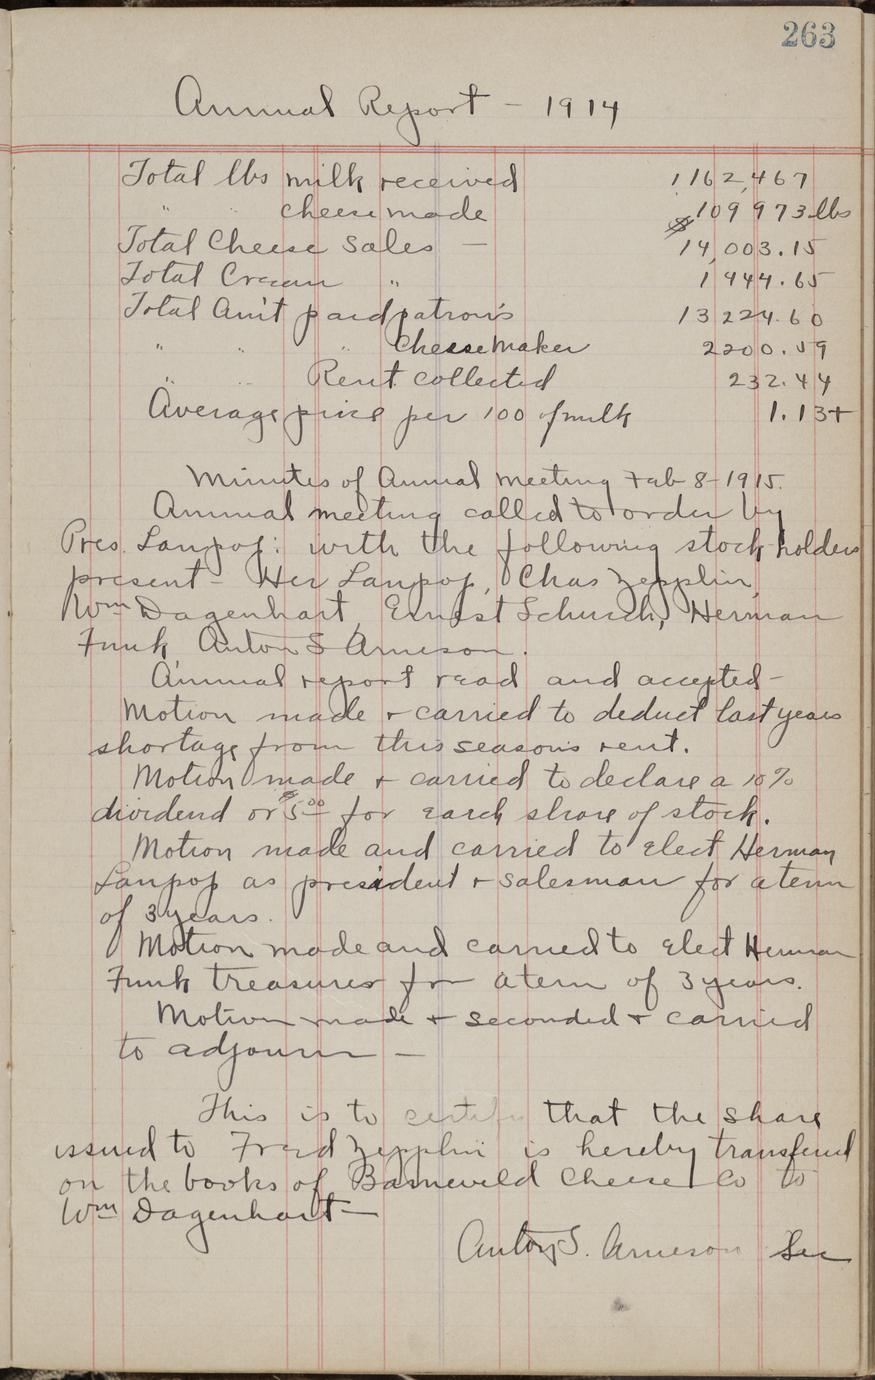 263
Annual Report - 1914
Total lbs milk received 1,162,467
" " cheese made 109973 lbs
Total Cheese Sales - $14,003.15
Total Cream " 1944.65
Total Am't paid patron's 13224.60
" " " Cheese Maker 2200.59
" " Rent collected 232.44
Average price per 100 of milk 1.13+
Minutes of Annual Meeting Feb-8-1915.
Annual meeting called to order by
Pres. Lampop: with the following stock-holders
present - Her Lampop, Chas Zepplin,
Wm Dagenhart, Ernest Schurch, Herman
Funk Anton S Arneson.
Annual report read and accepted-
Motion made + carried to deduct last years
shortage from this seasons rent.
Motion made + carried to declare a 10%
dividend or $5.00 for each share of stock.
Motion made and carried to elect Herman
Lampop as president + salesman for a term
of 3 years.
Motion made and carried to elect Herman
Funk treasurer for a term of 3 years.
Motion made + seconded + carried
to adjourn -
This is to certify that the share
issued to Fred Zepplin is hereby transferred
on the books of Barneveld Cheese Co to
Wm Dagenhart-
Anton S. Arneson Sec